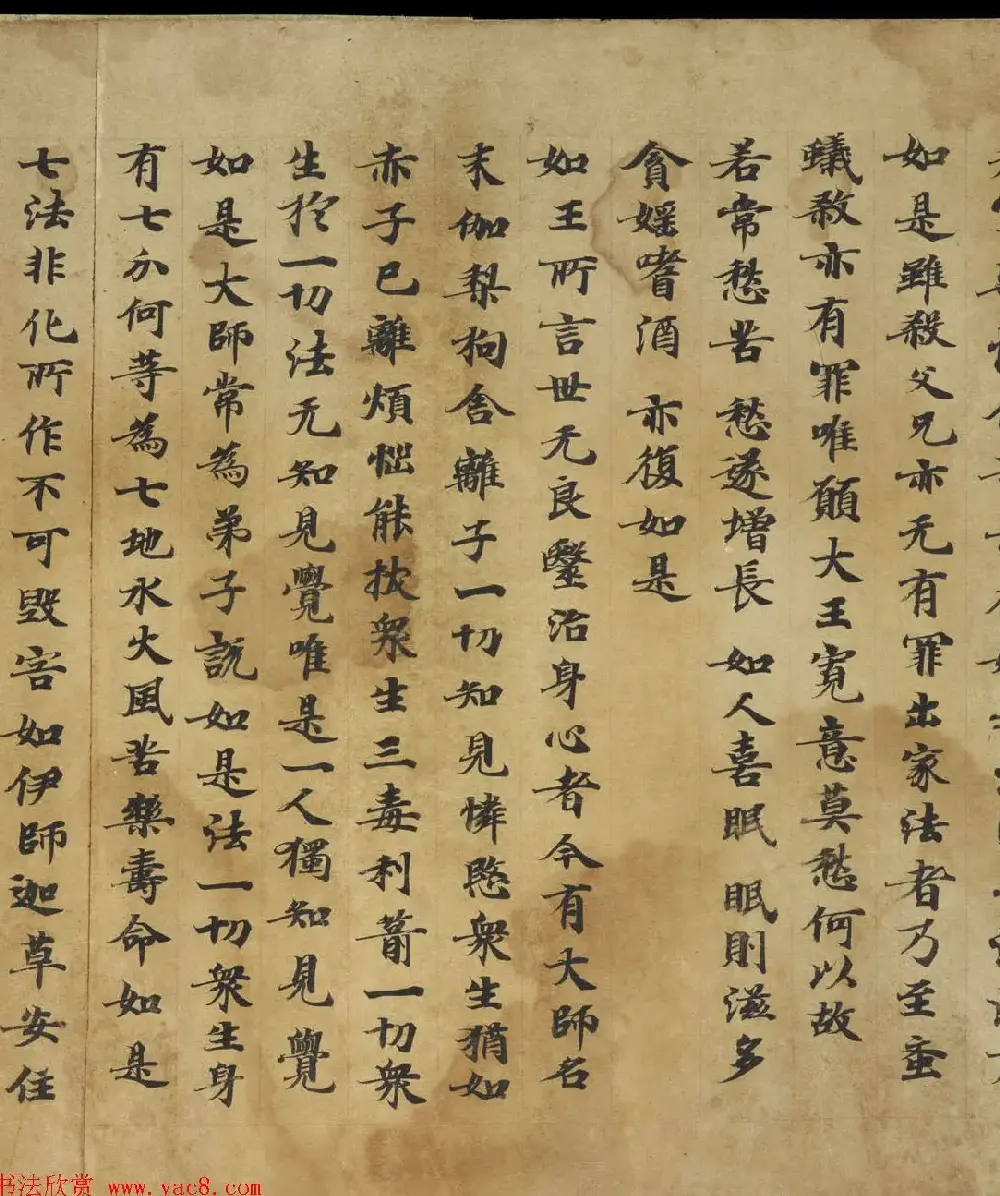 如是雖殺父兄亦无有罪出家法者乃至蚉
蟻煞亦有罪唯願大王寬意莫愁何以故
若常愁苦 愁遂增長 如人喜眠 眠則滋多
貪婬嗜酒 亦復如是
如王所言世无良毉治身心者今有大師名
末伽梨拘舍離子一切知見憐愍衆生猶如
赤子已離煩惱能拔衆生三毒利箭一切衆
生於一切法无知見覺唯是一人獨知見覺
如是大師常為弟子說如是法一切衆生身
有七分何等為七地水火風苦樂壽命如是
七法非化所作不可毀害如伊師迦草安住
书法欣赏 www.yac8.com